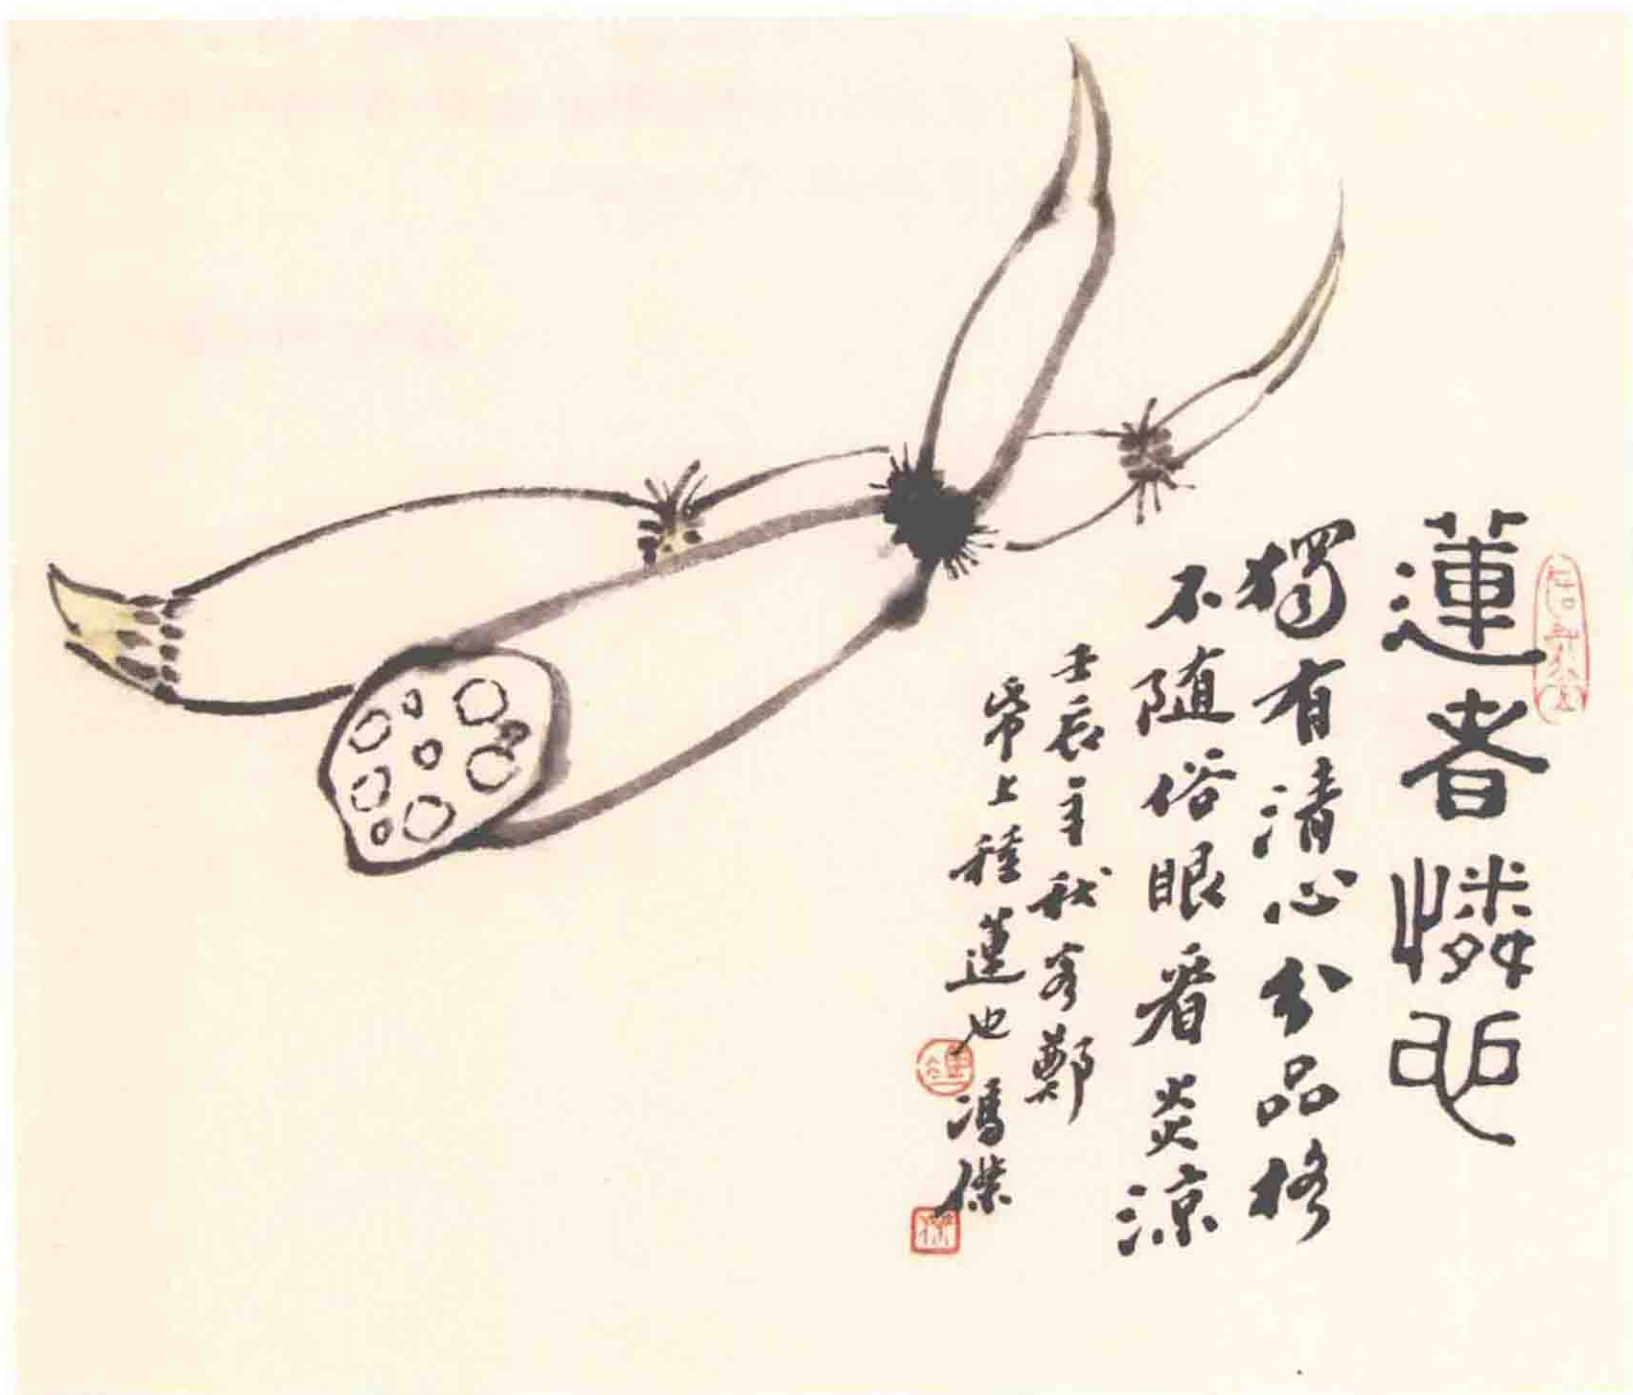 蓮者憐也
獨有清心分品格
不随俗眼看炎涼
壬辰年秋客鄭
紙上種蓮也 馮傑